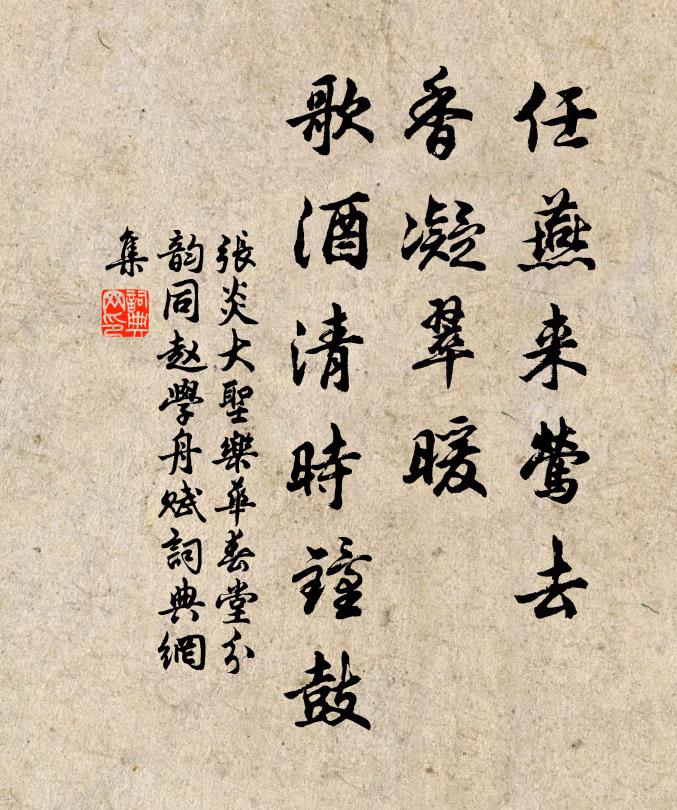 任燕来莺去
香凝翠暖
歌酒清時鐘鼓
張炎大聖樂華春堂分
韵同赵學舟赋詞典網
集
詞典
网印